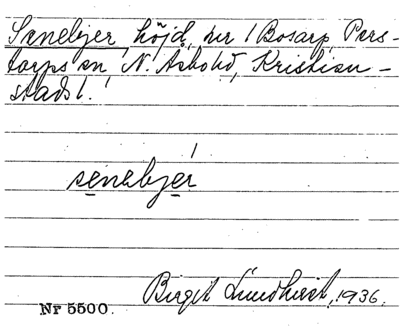 Senebjer höjd, hr 1 Bosarp Pers-
torps sn N. Åsbohd, Kristian-
stads l.
senebjer
Birgit Lundkvist, 1936.
Nr 5500.